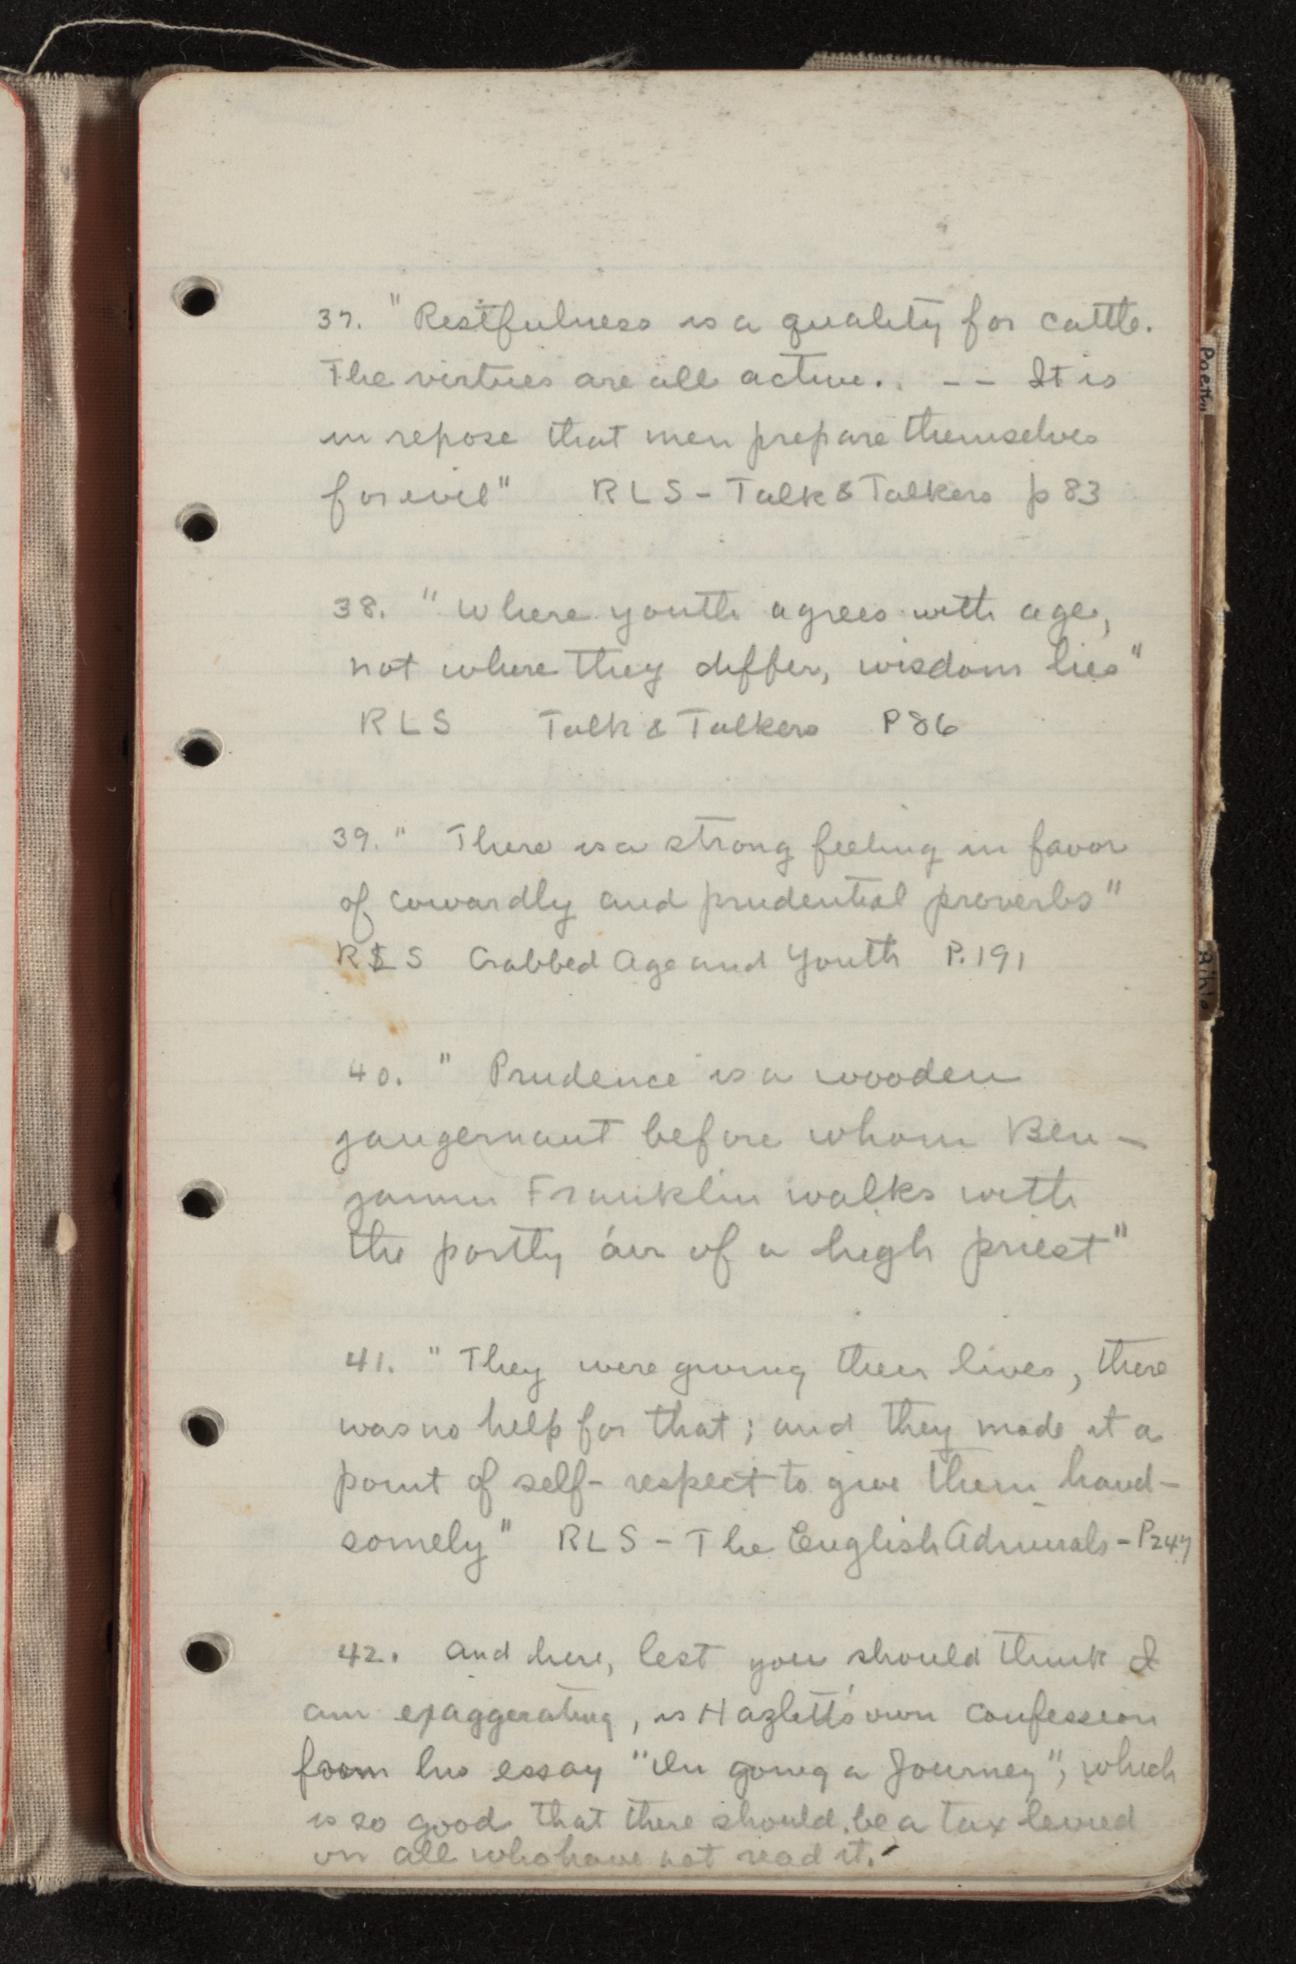 37. "Restfulness is a quality for cattle.
The virtues are all active. . -- It is
in repose that men prepare themselves
for evil" RLS - Talk & Talkers p 83
38. "Where youth agrees with age,
not where they differ, wisdom lies"
RLS Talk & Talkers P86
39. " There is a strong feeling in favor
of cowardly and prudential proverbs"
RLS Crabbed Age and Youth P. 191
40. " Prudence is a wooden
jaugernaut before whom Ben-
jamin Franklin walks with
the portly air of a high priest"
41. "They were giving their lives, there
was no help for that; and they made it a
point of self-respect to give them hand-
somely" RLS - The English Admirals - P247
42. And here, lest you should think I
am exaggerating, is Hazlitt's own confession
from his essay "On going a Journey", which
is so good that there should be a tax levied
on all who have not read it.
Poetry
Bible